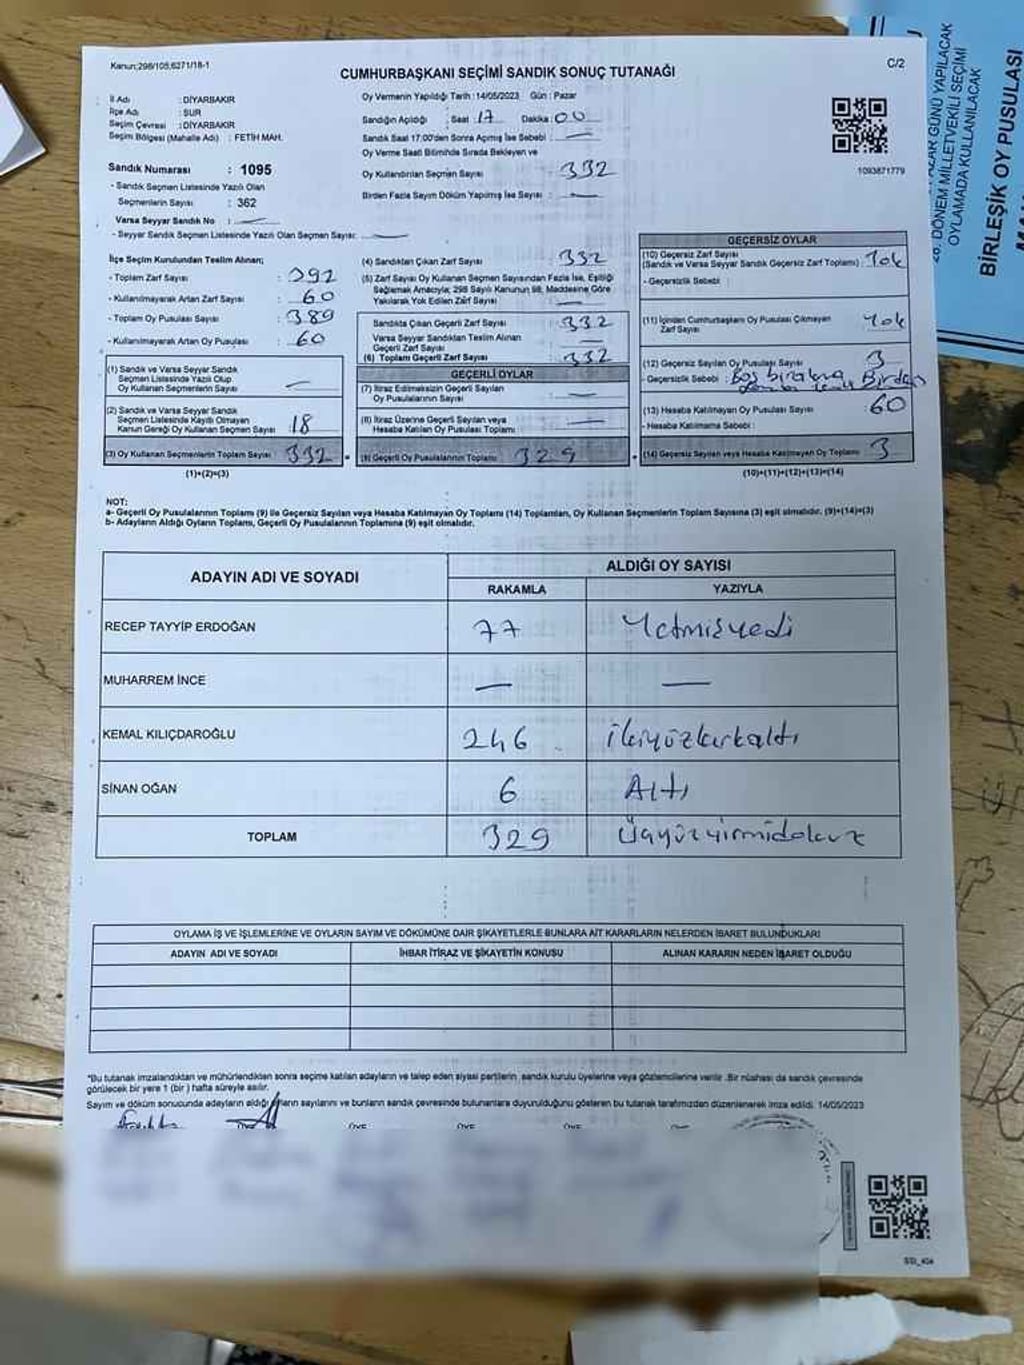 Kanun;298/105,6271/18-1
C/2
CUMHURBAŞKANI SEÇİMİ SANDIK SONUÇ TUTANAĞI
İl Adı : DİYARBAKIR
İlçe Adı : SUR
Seçim Çevresi : DİYARBAKIR
Seçim Bölgesi (Mahalle Adı) : FETİH MAH.
Sandık Numarası : 1095
- Sandık Seçmen Listesinde Yazılı Olan
Seçmenlerin Sayısı : 362
Varsa Seyyar Sandık No : —
- Seyyar Sandık Seçmen Listesinde Yazılı Olan Seçmen Sayısı: —
Oy Vermenin Yapıldığı Tarih : 14/05/2023 Gün : Pazar
Sandığın Açıldığı : Saat : 17 Dakika : 00
Sandık Saat 17:00'den Sonra Açılmış İse Sebebi : —
Oy Verme Saati Bitiminde Sırada Bekleyen ve
Oy Kullandırılan Seçmen Sayısı : 332
Birden Fazla Sayım Döküm Yapılmış İse Sayısı : —
1093871779
İlçe Seçim Kurulundan Teslim Alınan;
- Toplam Zarf Sayısı : 392
- Kullanılmayarak Artan Zarf Sayısı : 60
- Toplam Oy Pusulası Sayısı : 389
- Kullanılmayarak Artan Oy Pusulası : 60
(1) Sandık ve Varsa Seyyar Sandık
Seçmen Listesinde Yazılı Olup
Oy Kullanan Seçmenlerin Sayısı : —
(2) Sandık ve Varsa Seyyar Sandık
Seçmen Listesinde Kayıtlı Olmayan
Kanun Gereği Oy Kullanan Seçmen Sayısı : 18
(3) Oy Kullanan Seçmenlerin Toplam Sayısı : 332
(1)+(2)=(3)
(4) Sandıktan Çıkan Zarf Sayısı : 332
(5) Zarf Sayısı Oy Kullanan Seçmen Sayısından Fazla İse, Eşitliği
Sağlamak Amacıyla; 298 Sayılı Kanunun 98. Maddesine Göre
Yakılarak Yok Edilen Zarf Sayısı : —
Sandıkta Çıkan Geçerli Zarf Sayısı : 332
Varsa Seyyar Sandıktan Teslim Alınan
Geçerli Zarf Sayısı : —
(6) Toplam Geçerli Zarf Sayısı : 332
GEÇERLİ OYLAR
(7) İtiraz Edilmeksizin Geçerli Sayılan
Oy Pusulalarının Sayısı : —
(8) İtiraz Üzerine Geçerli Sayılan veya
Hesaba Katılan Oy Pusulası Toplamı : —
(9) Geçerli Oy Pusulalarının Toplamı : 329
GEÇERSİZ OYLAR
(10) Geçersiz Zarf Sayısı
(Sandık ve Varsa Seyyar Sandık Geçersiz Zarf Toplamı) : Yok
- Geçersizlik Sebebi :
(11) İçinden Cumhurbaşkanı Oy Pusulası Çıkmayan
Zarf Sayısı : Yok
(12) Geçersiz Sayılan Oy Pusulası Sayısı : 3
- Geçersizlik Sebebi : Boş bırakma Birden
(13) Hesaba Katılmayan Oy Pusulası Sayısı : 60
- Hesaba Katılmama Sebebi :
(14) Geçersiz Sayılan veya Hesaba Katılmayan Oy Toplamı : 3
(10)+(11)+(12)+(13)=(14)
NOT:
a- Geçerli Oy Pusulalarının Toplamı (9) ile Geçersiz Sayılan veya Hesaba Katılmayan Oy Toplamı (14) Toplamları, Oy Kullanan Seçmenlerin Toplam Sayısına (3) eşit olmalıdır. (9)+(14)=(3)
b- Adayların Aldığı Oyların Toplamı, Geçerli Oy Pusulalarının Toplamına (9) eşit olmalıdır.
ADAYIN ADI VE SOYADI
ALDIĞI OY SAYISI
RAKAMLA YAZIYLA
RECEP TAYYİP ERDOĞAN 77 Yetmişyedi
MUHARREM İNCE — —
KEMAL KILIÇDAROĞLU 246 ikiyüzkırkaltı
SİNAN OĞAN 6 Altı
TOPLAM 329 Üçyüzyirmidokuz
OYLAMA İŞ VE İŞLEMLERİNE VE OYLARIN SAYIM VE DÖKÜMÜNE DAİR ŞİKAYETLERLE BUNLARA AİT KARARLARIN NELERDEN İBARET BULUNDUKLARI
ADAYIN ADI VE SOYADI İHBAR İTİRAZ VE ŞİKAYETİN KONUSU ALINAN KARARIN NEDEN İBARET OLDUĞU
"Bu tutanak imzalandıktan ve mühürlendikten sonra seçime katılan adayların ve talep eden siyasi partilerin, sandık kurulu üyelerine veya gözlemcilerine verilir. Bir nüshası da sandık çevresinde
görülecek bir yere 1 (bir) hafta süreyle asılır.
Sayım ve döküm sonucunda adayların aldığı oyların sayılarını ve bunların sandık çevresinde bulunanlara duyurulduğunu gösteren bu tutanak tarafımızdan düzenlenerek imza edildi. 14/05/2023
ÜYE ÜYE ÜYE ÜYE
28. DÖNEM MİLLETVEKİLİ SEÇİMİ
PAZAR GÜNÜ YAPILACAK
OYLAMADA KULLANILACAK
BİRLEŞİK OY PUSULASI